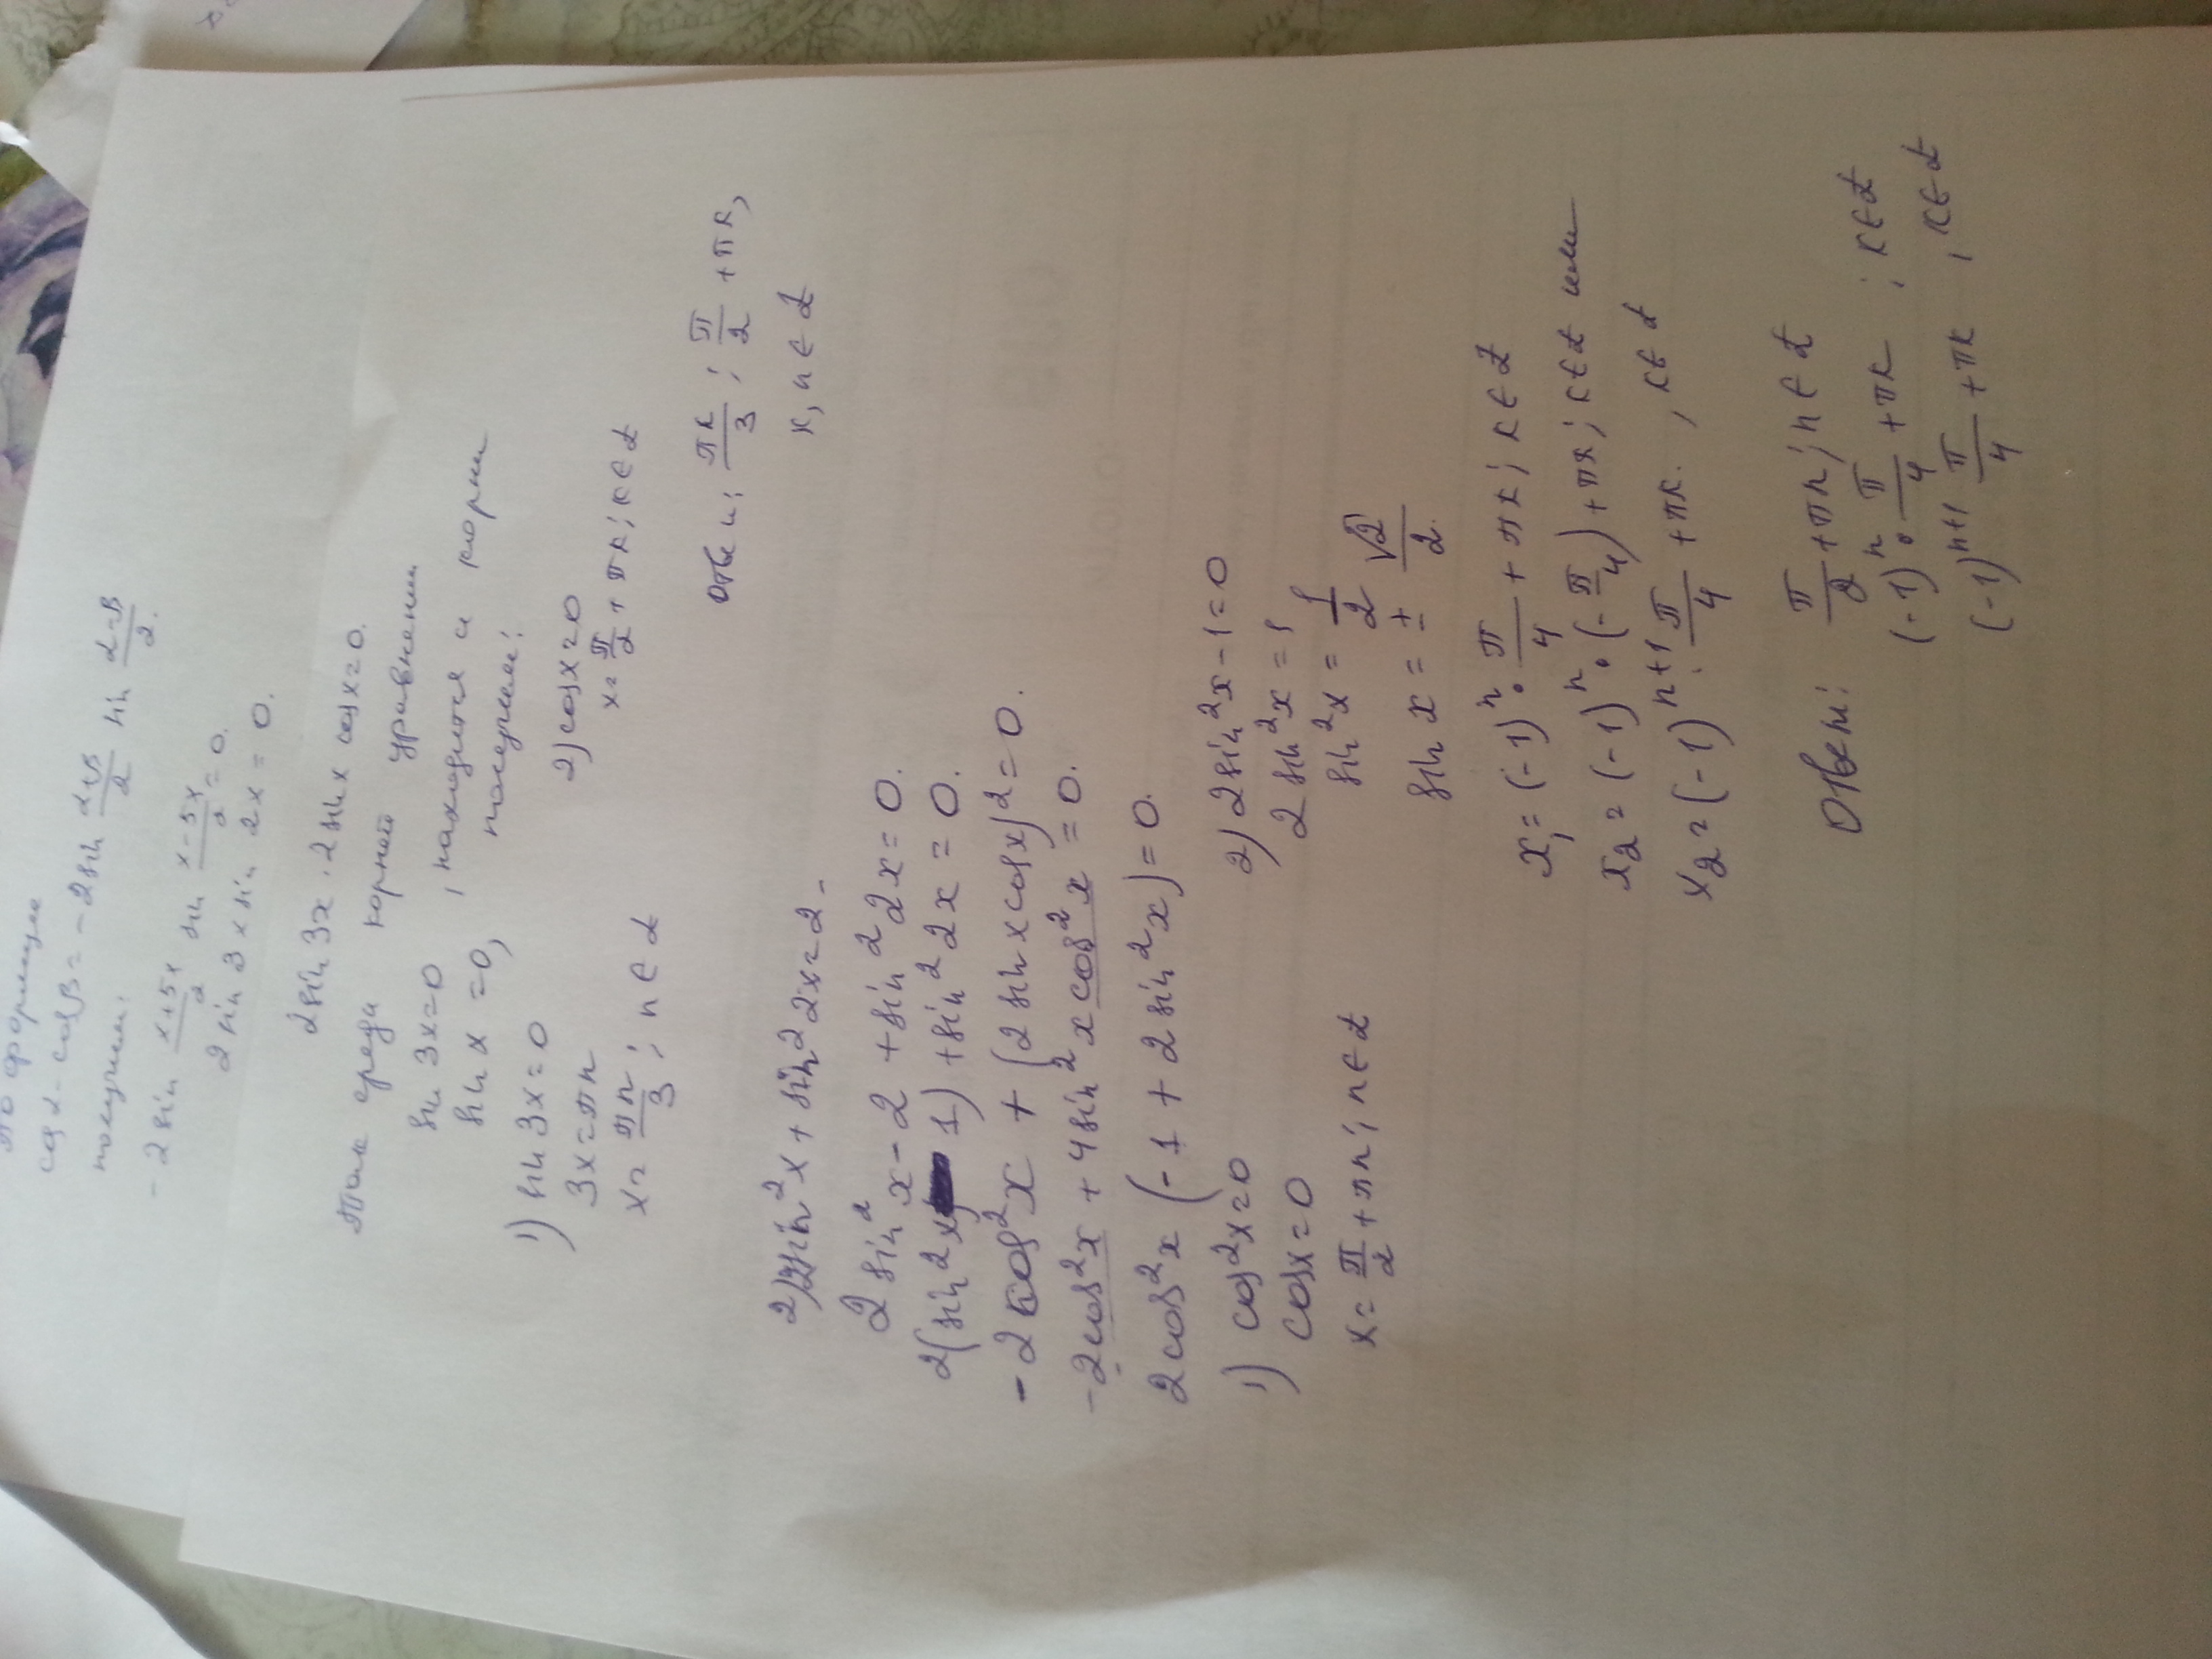 по формуле
cos α - cos β = -2 sin (α+β)/2 sin (α-β)/2.
получим:
-2 sin (x+5x)/2 sin (x-5x)/2 = 0.
2 sin 3x sin 2x = 0.
2 sin 3x · 2 sin x cos x = 0.
среди корней уравнения
sin 3x = 0
sin x = 0, , находятся и корни
получаем:
1) sin 3x = 0
3x = πn
x = πn/3 ; n ∈ Z
2) cos x = 0
x = π/2 + πк; к ∈ Z
Ответ: πк/3 ; π/2 + πк,
к, n ∈ Z
2) 2sin²x + sin²2x = 2.
2 sin²x - 2 + sin²2x = 0.
2(sin²x - 1) + sin²2x = 0.
-2 cos²x + (2 sin x cos x)² = 0.
-2cos²x + 4sin²x cos²x = 0.
2cos²x (-1 + 2 sin²x) = 0.
1) cos²x = 0
cos x = 0
x = π/2 + πn; n ∈ Z
2) 2sin²x - 1 = 0
2 sin²x = 1
sin²x = 1/2
sin x = ± √2/2.
x₁ = (-1)ⁿ · π/4 + πк; к ∈ Z
x₂ = (-1)ⁿ · (-π/4) + πк; к ∈ Z или
x₂ = (-1)ⁿ⁺¹ · π/4 + πк. , к ∈ Z
Ответ: π/2 + πn; n ∈ Z
(-1)ⁿ · π/4 + πк ; к ∈ Z
(-1)ⁿ⁺¹ π/4 + πк , к ∈ Z